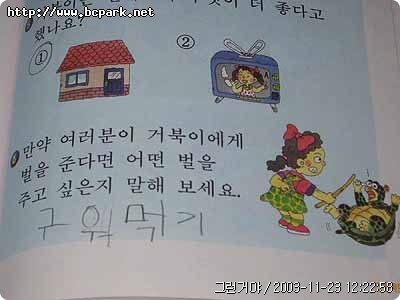 http://www.bcpark.net
더 좋다고
했나요?
① ②
만약 여러분이 거북이에게
벌을 준다면 어떤 벌을
주고 싶은지 말해 보세요.
구워먹기
그런거야 / 2003-11-23 12:22:58